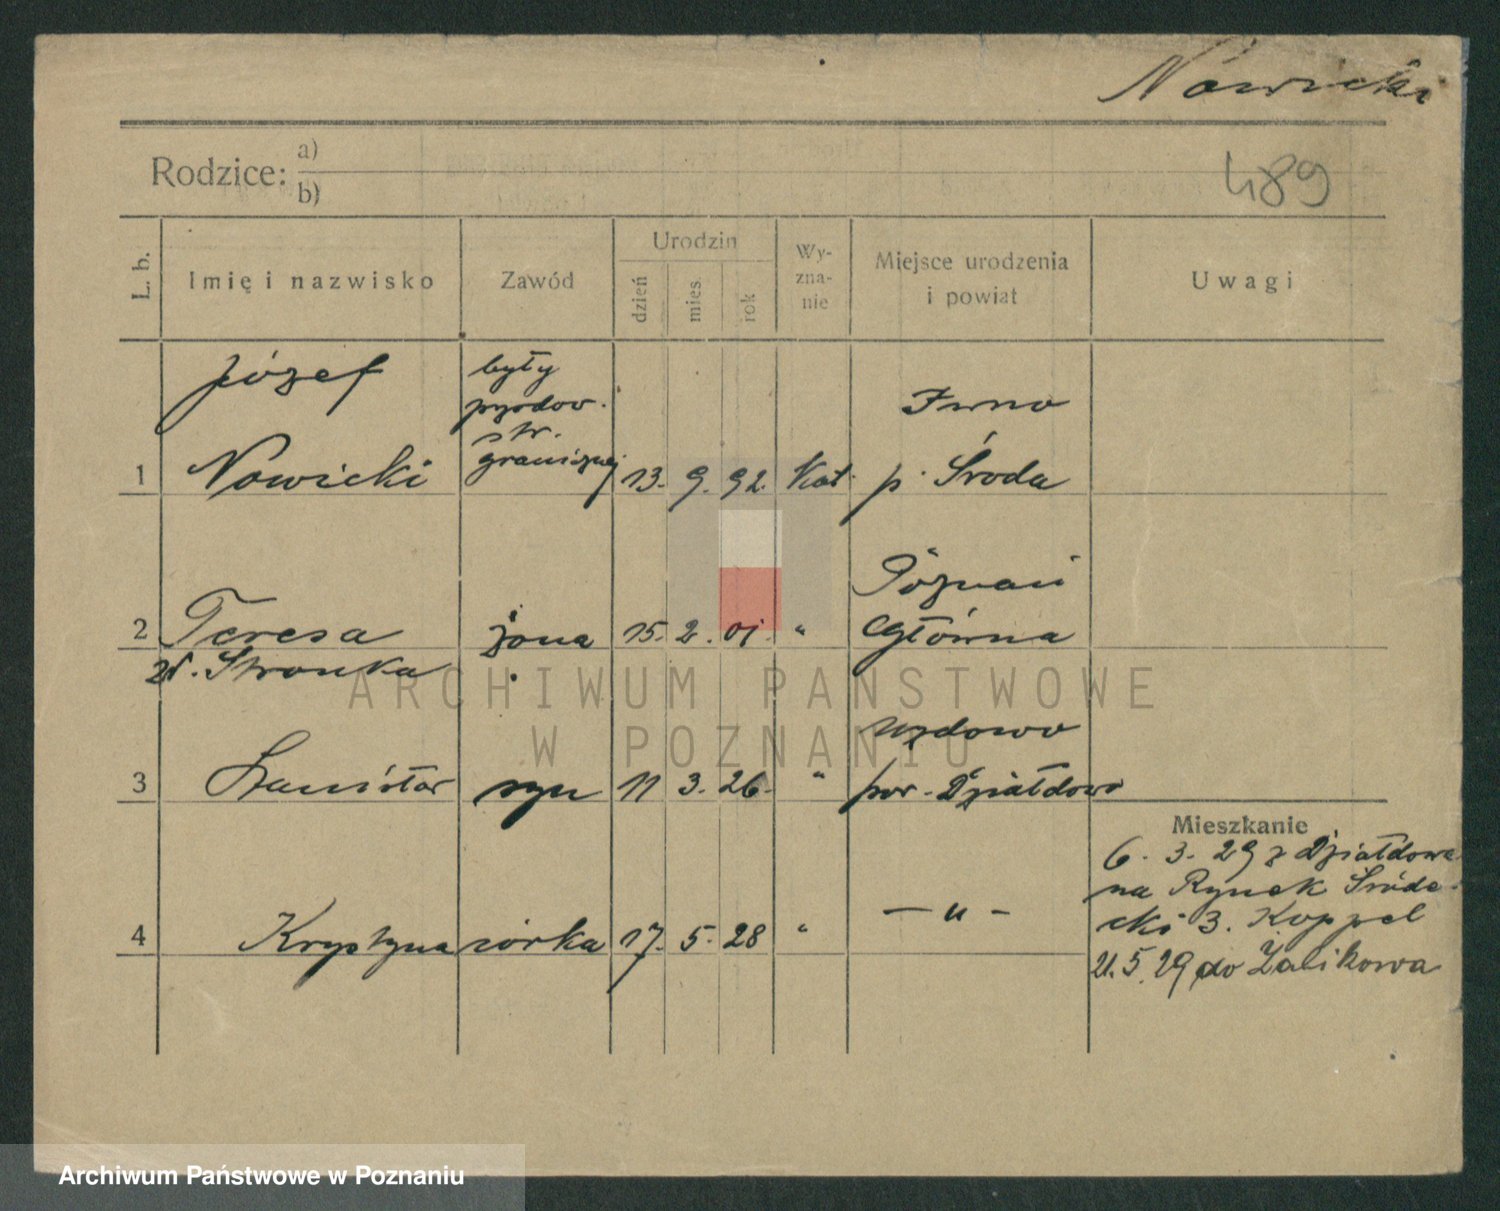 Nowicki
489
Rodzice: a)
b)
L. b. Imię i nazwisko Zawód Urodzin dzień mies. rok Wy-zna-nie Miejsce urodzenia i powiat Uwagi
Józef były
przodow.
str.
granicznej
1 Nowicki 13. 9. 92. Kat. p. Środa
Poznań
2 Teresa żona 15. 2. 01. " Główna
zd. Stronka
Uzdowo
3 Stanisław syn 11 3. 26. " pow. Działdowo
Mieszkanie
6. 3. 29 z Działdowa
na Rynek Śróde-
cki 3. Koppel
4 Krystyna córka 17. 5. 28 " — " —
21. 5. 29 do Żabikowa
ARCHIWUM PAŃSTWOWE
W POZNANIU
Archiwum Państwowe w Poznaniu